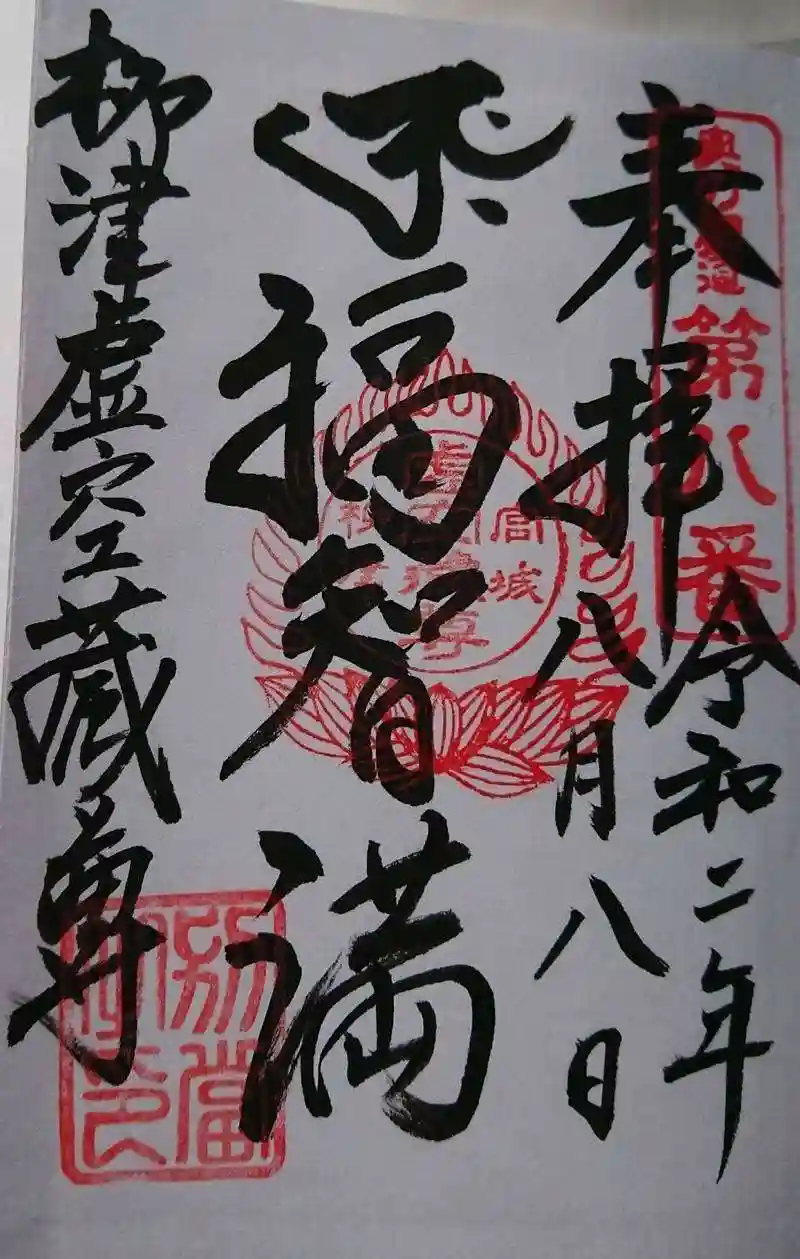 奉拝
第八番
令和二年
八月八日
福智満
虚空蔵尊
宮城
柳津虚空蔵尊
別當